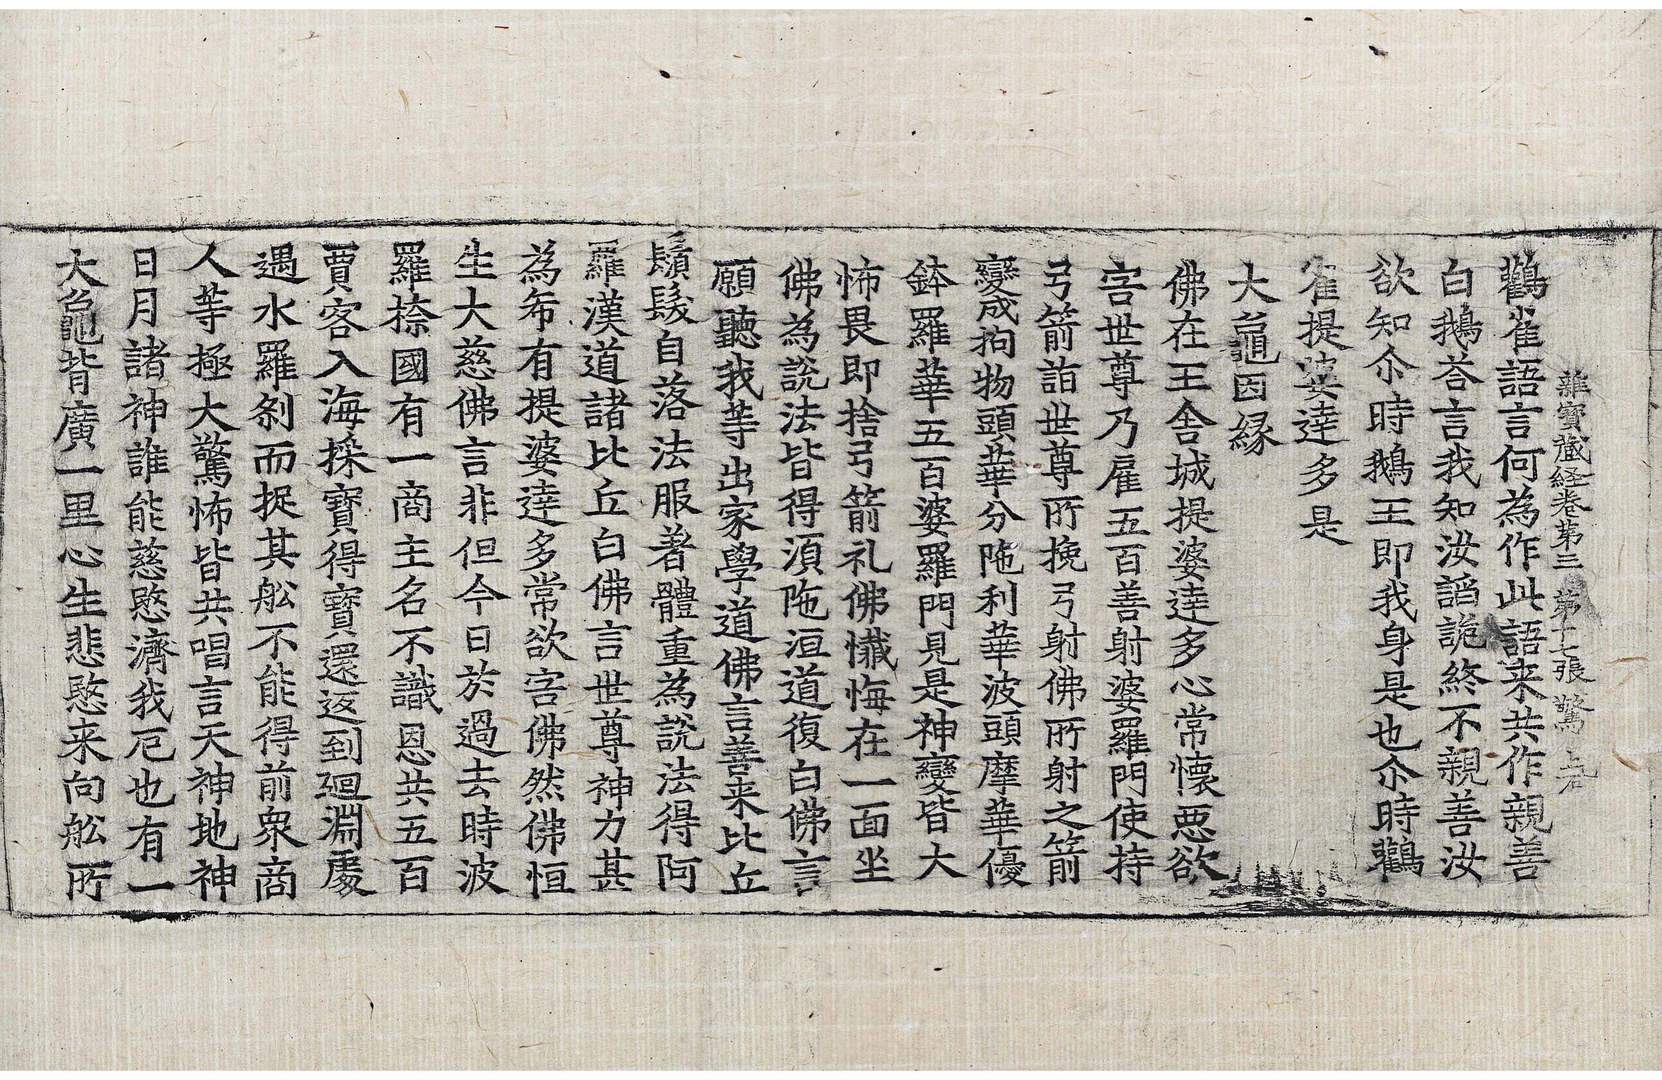 雜寶藏経卷第三 第十七張 驚
鸛雀語言何為作此語来共作親善
白鵝荅言我知汝謟詭終不親善汝
欲知尒時鵝王即我身是也尒時鸛
雀提婆達多是
大龜因縁
佛在王舍城提婆達多心常懷悪欲
害世尊乃雇五百善射婆羅門使持
弓箭詣世尊所挽弓射佛所射之箭
變成拘物頭華分陁利華波頭摩華優
鉢羅華五百婆羅門見是神變皆大
怖畏即捨弓箭礼佛懴悔在一面坐
佛為説法皆得湏陁洹道復白佛言
願聽我等出家學道佛言善来比丘
鬚髮自落法服著體重為説法得阿
羅漢道諸比丘白佛言世尊神力甚
為希有提婆達多常欲害佛然佛恒
生大慈佛言非但今日於過去時波
羅㮈國有一商主名不識恩共五百
賈客入海採寳得寳還返到迴淵䖏
遇水羅刹而捉其舩不能得前衆商
人等極大驚怖皆共唱言天神地神
日月諸神誰能慈愍濟我厄也有一
大龜背廣一里心生悲愍来向舩所